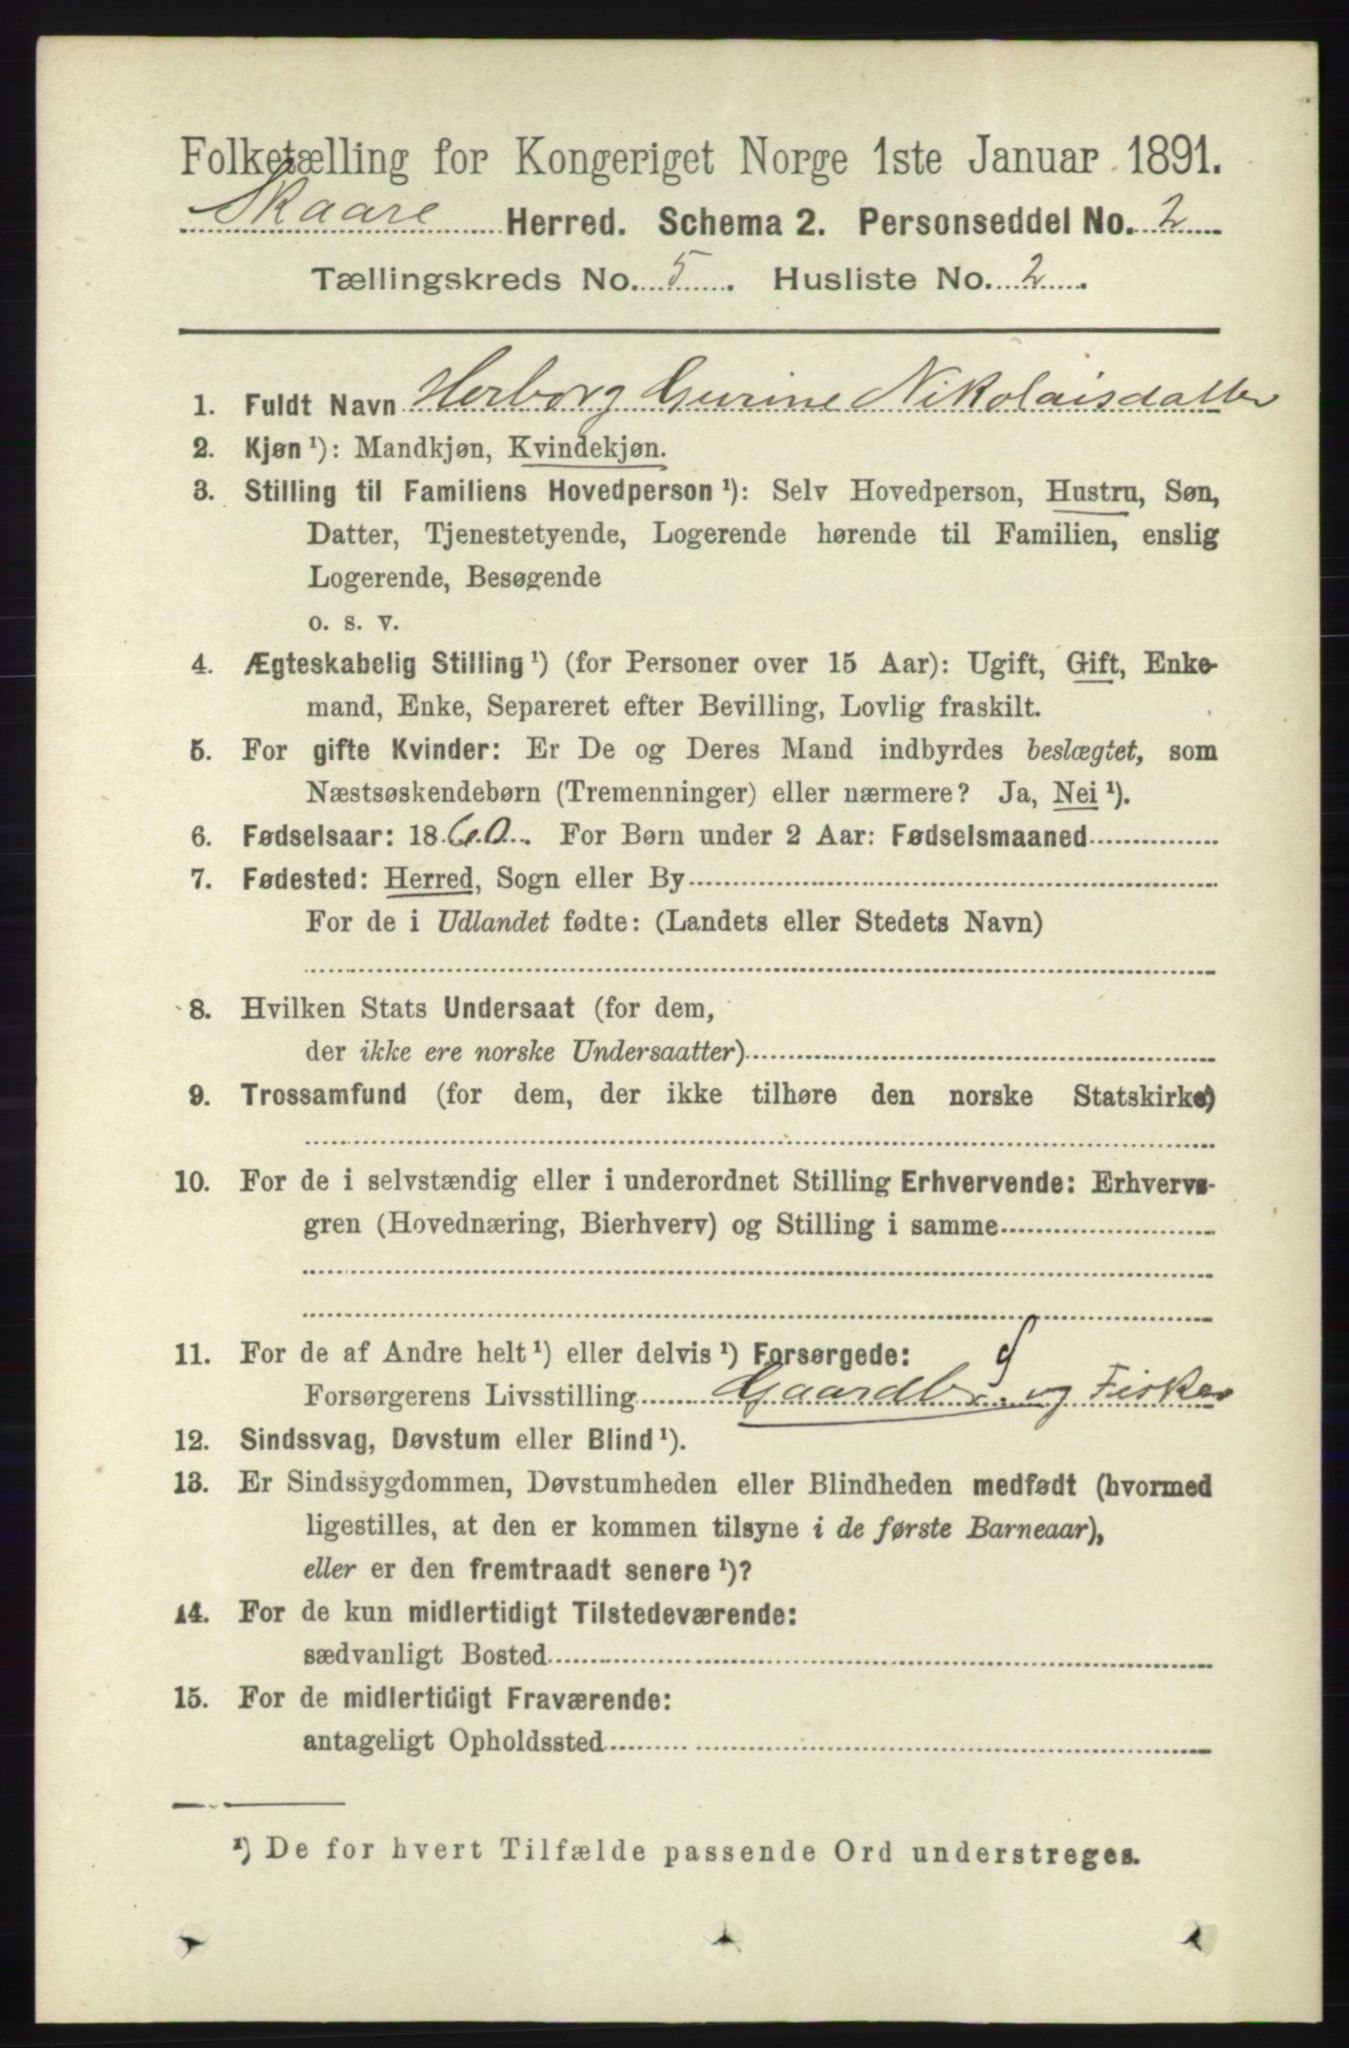 Folketælling for Kongeriget Norge 1ste Januar 1891.
Skaare Herred. Schema 2. Personseddel No. 2
Tællingskreds No. 5. Husliste No. 2.
1. Fuldt Navn Herborg Gurine Nikolaisdatter
2. Kjøn ¹): Mandkjøn, Kvindekjøn.
3. Stilling til Familiens Hovedperson ¹): Selv Hovedperson, Hustru, Søn,
Datter, Tjenestetyende, Logerende hørende til Familien, enslig
Logerende, Besøgende
o. s. v.
4. Ægteskabelig Stilling ¹) (for Personer over 15 Aar): Ugift, Gift, Enke-
mand, Enke, Separeret efter Bevilling, Lovlig fraskilt.
5. For gifte Kvinder: Er De og Deres Mand indbyrdes beslægtet, som
Næstsøskendebørn (Tremenninger) eller nærmere? Ja, Nei ¹).
6. Fødselsaar: 1860. For Børn under 2 Aar: Fødselsmaaned
7. Fødested: Herred, Sogn eller By
For de i Udlandet fødte: (Landets eller Stedets Navn)
8. Hvilken Stats Undersaat (for dem,
der ikke ere norske Undersaatter)
9. Trossamfund (for dem, der ikke tilhøre den norske Statskirke)
10. For de i selvstændig eller i underordnet Stilling Erhvervende: Erhvervs-
gren (Hovednæring, Bierhverv) og Stilling i samme
11. For de af Andre helt ¹) eller delvis ¹) Forsørgede:
Forsørgerens Livsstilling Gaardbr. og Fisker
12. Sindssvag, Døvstum eller Blind ¹).
13. Er Sindssygdommen, Døvstumheden eller Blindheden medfødt (hvormed
ligestilles, at den er kommen tilsyne i de første Barneaar),
eller er den fremtraadt senere ¹)?
14. For de kun midlertidigt Tilstedeværende:
sædvanligt Bosted
15. For de midlertidigt Fraværende:
antageligt Opholdssted
¹) De for hvert Tilfælde passende Ord understreges.